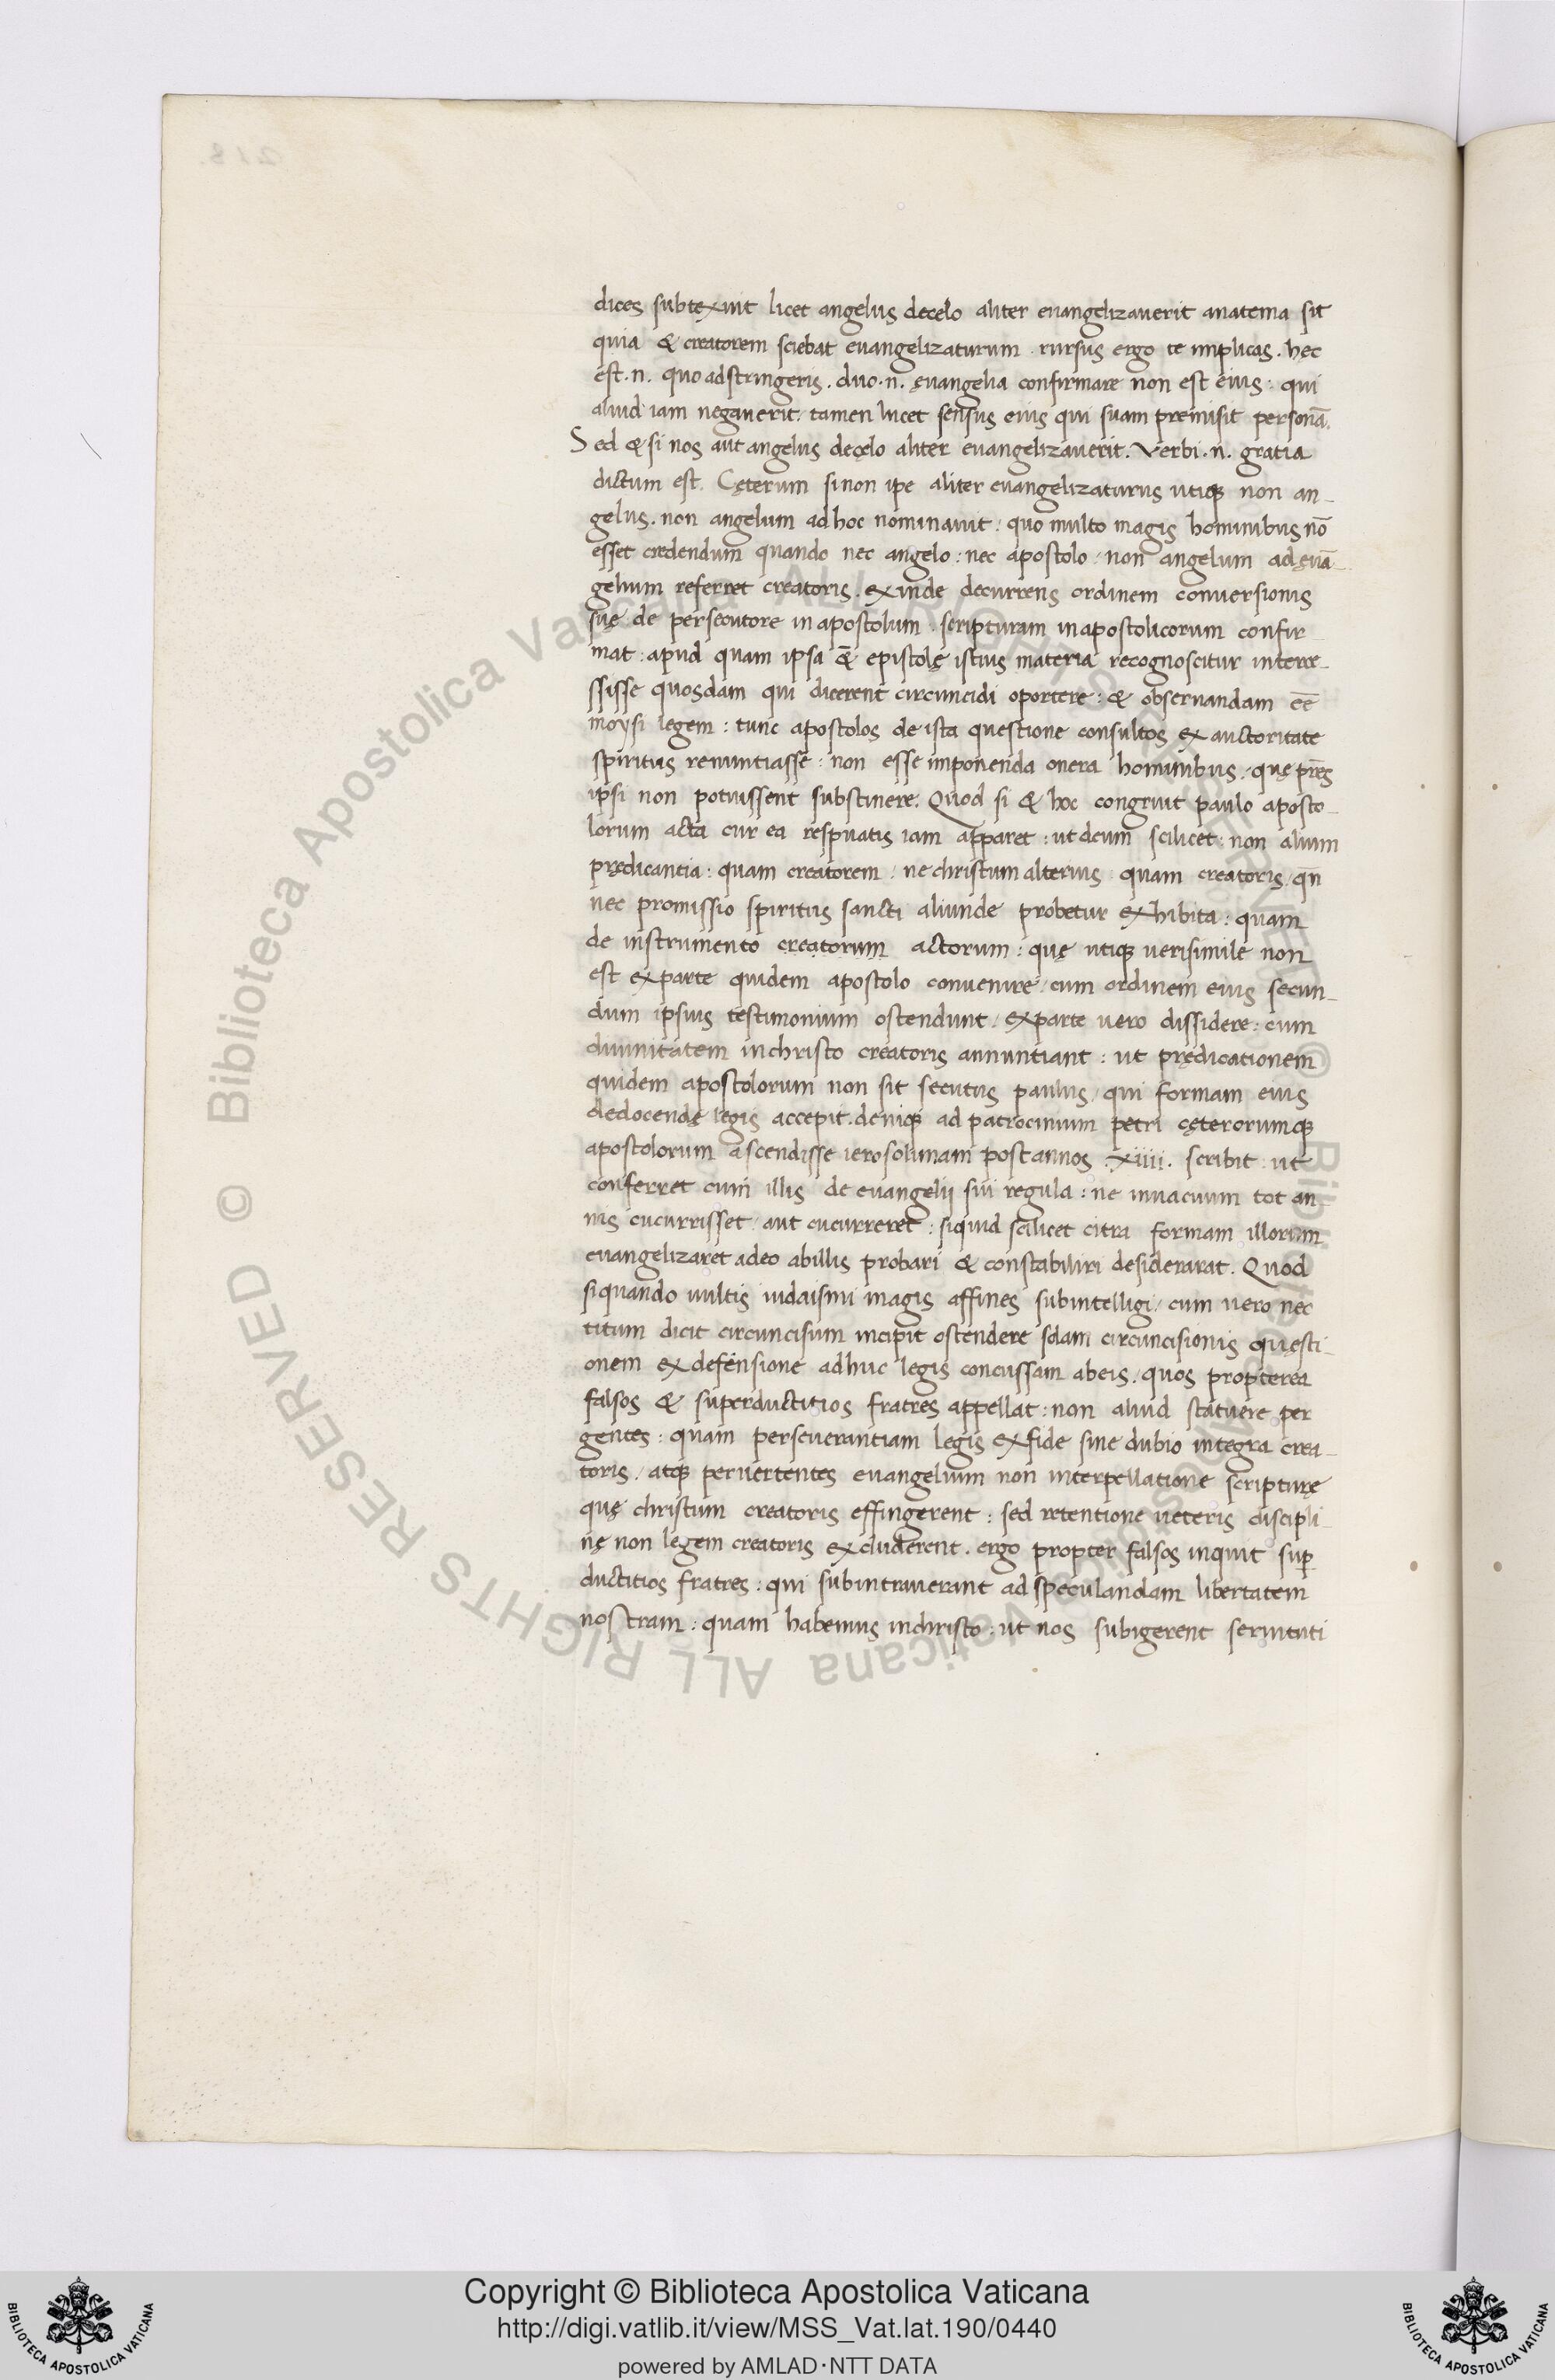 dices subtexuit licet angelus decelo aliter euangelizauerit anatema sit
quia & creatorem sciebat euangelizaturum . rursus ergo te implicas . hec
est . n . quo adstringeris . duo . n . ęuangelia confirmare non est eius : qui
aliud iam negauerit . tamen lucet sensus eius qui suam premisit personā .
Sed & si nos aut angelus decęlo aliter euangelizauerit . Verbi . n . gratia
dictum est . Cęterum sinon ipe aliter euangelizaturus utiqꝫ non an-
gelus . non angelum ad hoc nominauit / quo multo magis hominibus nō
esset credendum quando nec angelo : nec apostolo / non angelum ad ęuā-
gelium referret creatoris . exinde decurrens ordinem conuersionis
suę de persecutore in apostolum . scripturam inapostolicorum confir-
mat : apud quam ipsa & epistolę istius materia recognoscitur interce-
ssisse quosdam qui dicerent circuncidi oportere : & obseruandam eē
moysi legem : tunc apostolos de ista questione consultos ex auctoritate
spiritus renuntiasse : non esse imponenda onera hominibus / quę prēs
ipsi non potuissent substinere . Quod si & hoc congruit paulo aposto-
lorum acta cur ea respuatis iam apparet : ut deum scilicet : non alium
prędicantia : quam creatorem / ne christum alterius quam creatoris / qn̄
nec promissio spiritus sancti aliunde probetur exhibita : quam
de instrumento creatorum actorum : quę utiqꝫ uerisimile non
est exparte quidem apostolo conuenire / cum ordinem eius secun-
dum ipsius testimonium ostendunt / exparte uero dissidere : cum
diuinitatem inchristo creatoris annuntiant : ut prędicationem
quidem apostolorum non sit secutus paulus / qui formam eius
dedocendę legis accepit . deniqꝫ ad patrocinium petri cęterorumqꝫ
apostolorum ascendisse ierosolimam post annos . xiiii . scribit ut
conferret cum illis de euangelij sui regula : ne inuacuum tot an-
nis cucurrisset / aut cucurreret : siquid scilicet citra formam illorum
euangelizaret adeo abillis probari & constabiliri desiderarat . Quod
siquando uultis iudaismi magis affines subintelligi / cum uero nec
titum dicit circuncisum incipit ostendere solam circuncisionis quęsti-
onem exdefensione adhuc legis concussam abeis . quos propterea
falsos & superductitios fratres appellat : non aliud statuere per
gentes : quam perseuerantiam legis exfide sine dubio integra crea-
toris . atqꝫ peruertentes euangelium non interpellatione scripturę
quę christum creatoris effingerent : sed retentione ueteris discipli-
nę non legem creatoris excluderent . ergo propter falsos inquit suꝑ
ductitios fratres : qui subintrauerant ad speculandam libertatem
nostram : quam habemus inchristo : ut nos subigerent seruituti
© Biblioteca Apostolica Vaticana ALL RIGHTS RESERVED
© Biblioteca Apostolica Vaticana ALL RIGHTS RESERVED
218.
Copyright © Biblioteca Apostolica Vaticana
http://digi.vatlib.it/view/MSS_Vat.lat.190/0440
powered by AMLAD·NTT DATA
BIBLIOTECA APOSTOLICA VATICANA
BIBLIOTECA APOSTOLICA VATICANA